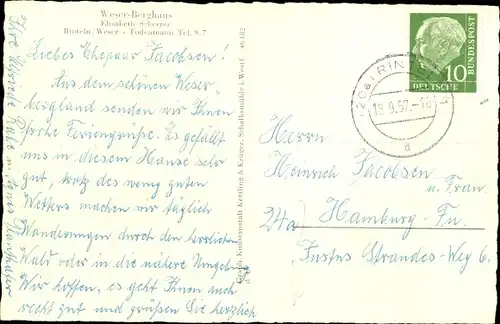 Weser-Berghaus
Elisabeth Scherrer
Rinteln/Weser - Todenmann Tel. 9 7
Liebes Ehepaar Jacobsen!
Aus dem schönen Weser-
bergland senden wir Ihnen
frohe Feriengrüße. Es gefällt
uns in diesem Hause sehr
gut, trotz des wenig guten
Wetters machen wir täglich
Wanderungen durch den herrlichen
Wald oder in die nähere Umgebung
Wir hoffen, es geht Ihnen auch
recht gut und grüßen Sie herzlich
Ihre
46 182
Cekade, Kunstanstalt Kettling & Krüger, Schalksmühle i. Westf.
10
DEUTSCHE
BUNDESPOST
18.9.57.-18
d
Herrn
Heinrich Jacobsen
u. Frau
24a Hamburg-Fu.
Justus Strandes-Weg 6.